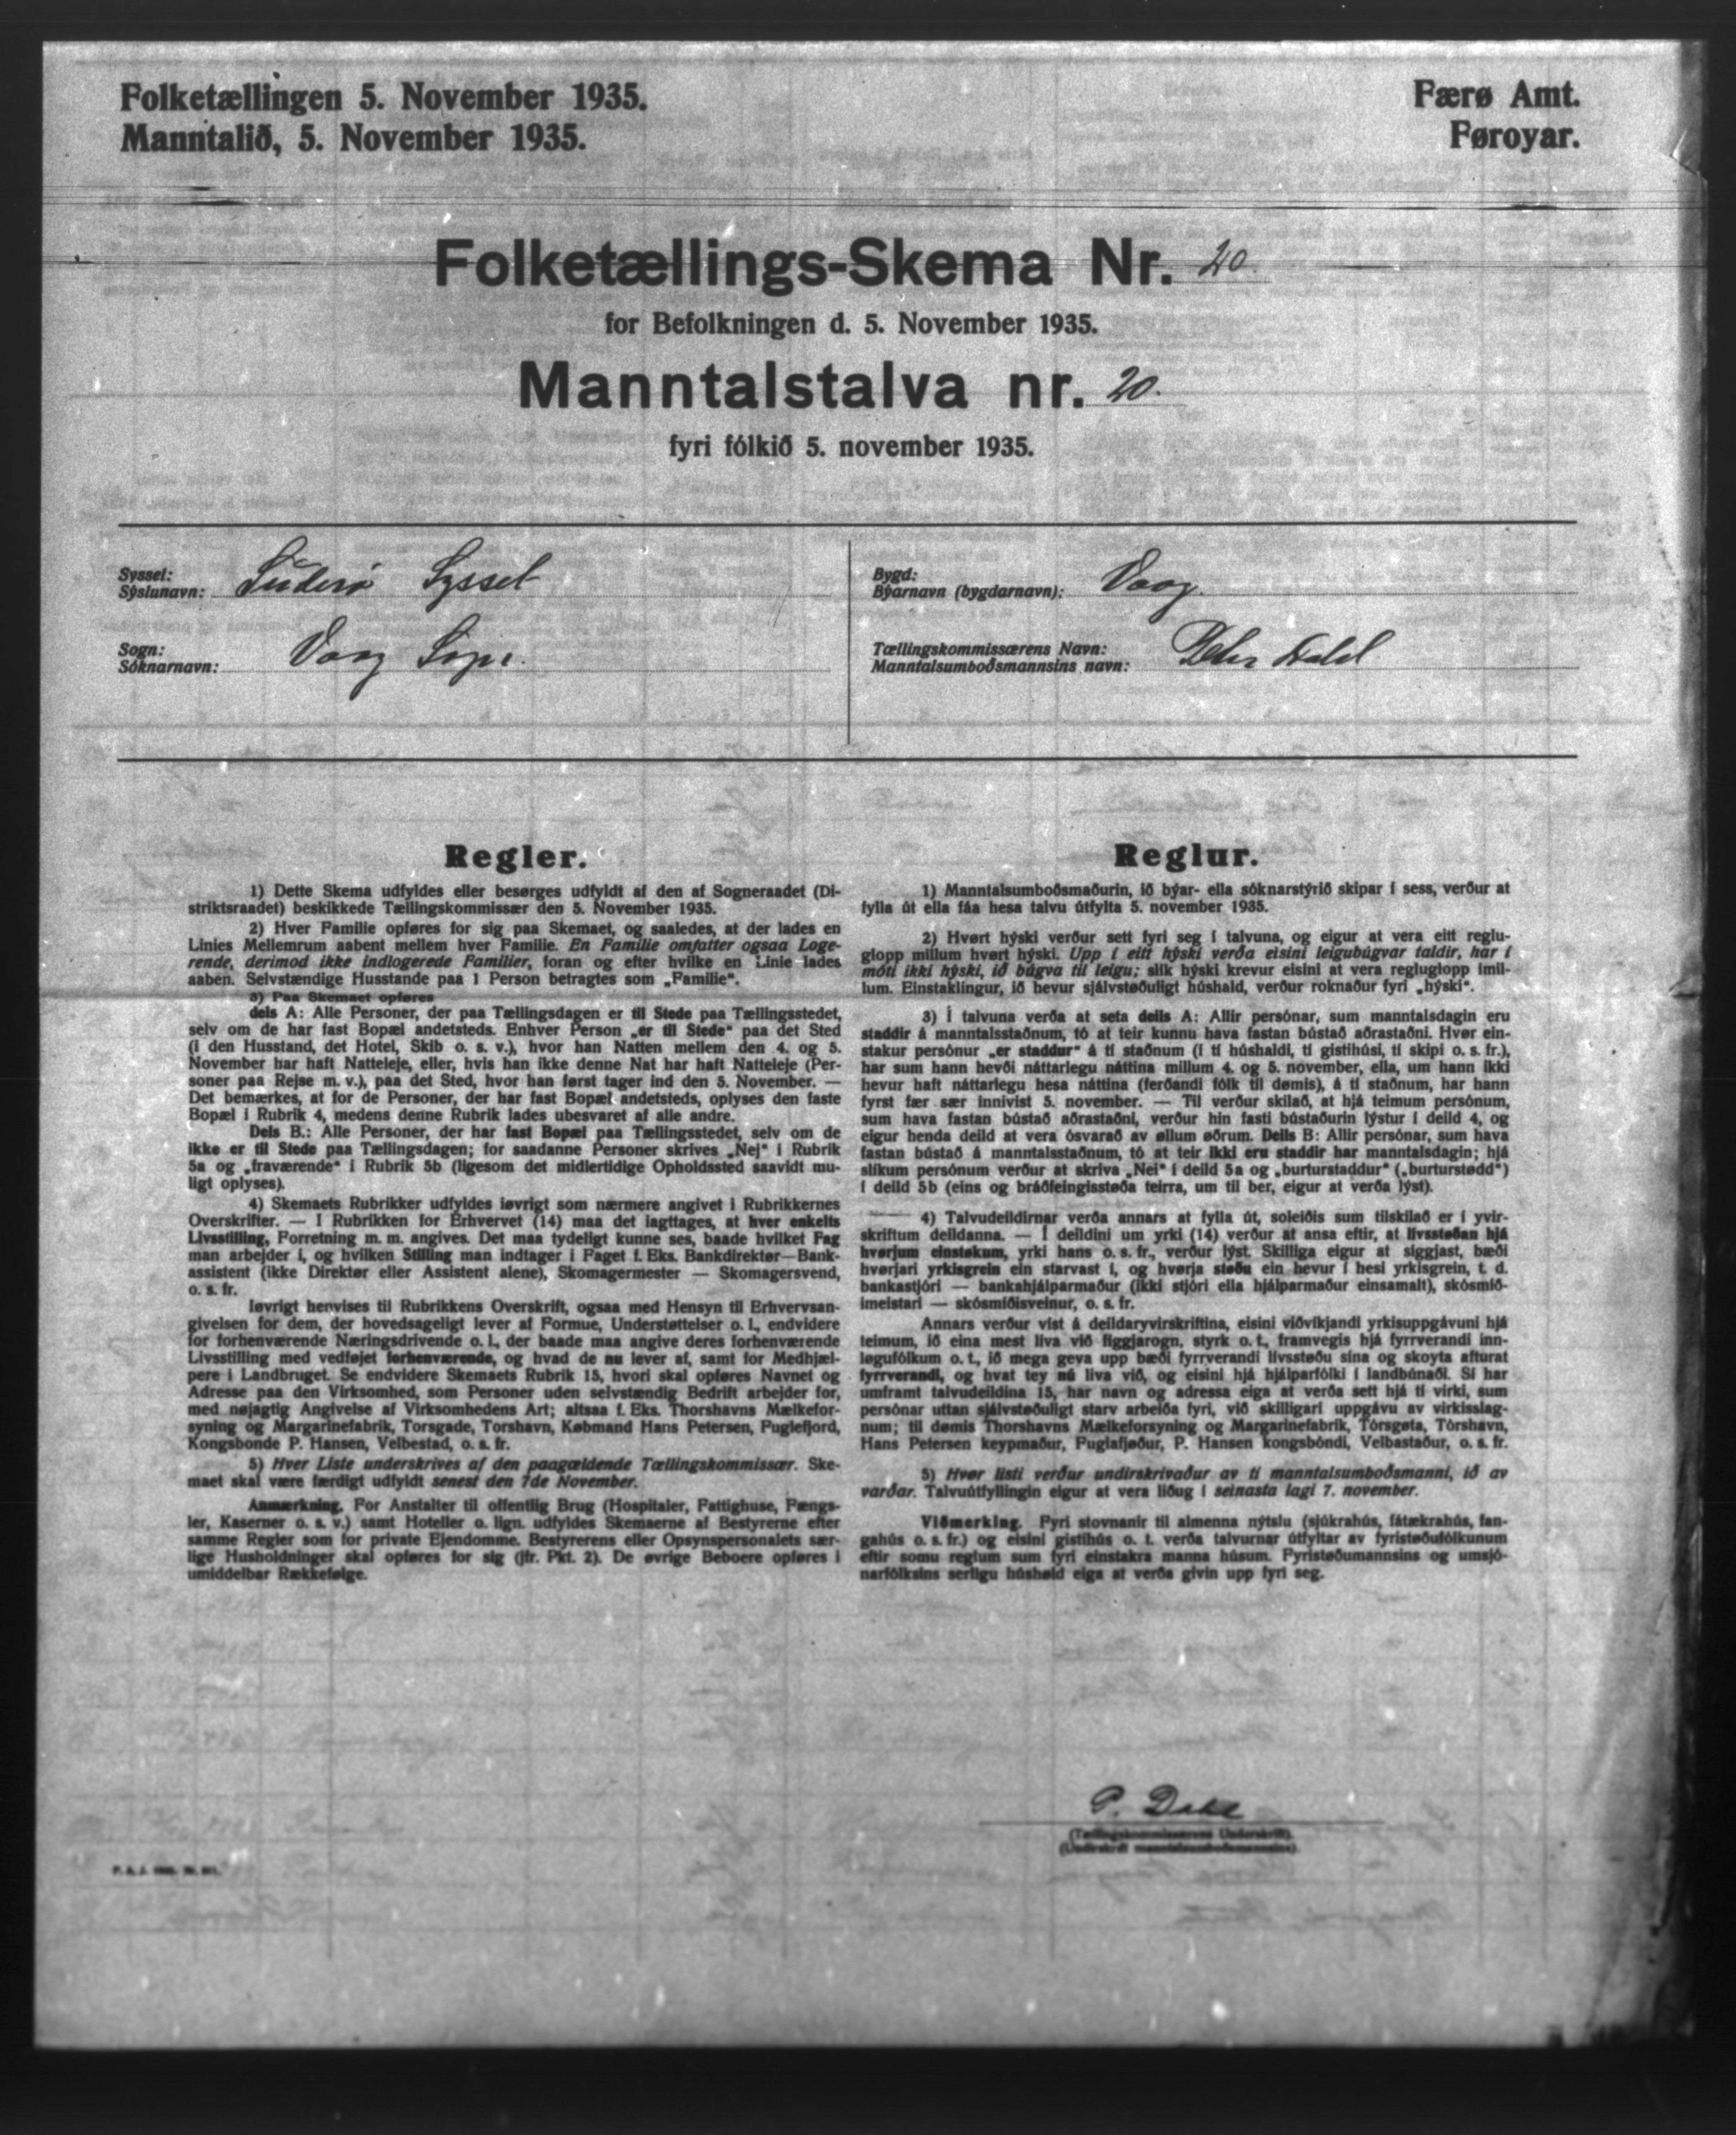 Folketællingen 5. November 1935.
Manntalið, 5. November 1935.
Færø Amt.
Føroyar.
Folketællings-Skema Nr. 20.
for Befolkningen d. 5. November 1935.
Manntalstalva nr. 20.
fyri fólkið 5. november 1935.
Syssel:
Sýslunavn: Suderø Syssel
Sogn:
Sóknarnavn: Vaag Sogn.
Bygd:
Býarnavn (bygdarnavn): Vaag.
Tællingskommissærens Navn:
Manntalsumboðsmannsins navn: Peter Dahl
Regler.
1) Dette Skema udfyldes eller besørges udfyldt af den af Sogneraadet (Di-
striktsraadet) beskikkede Tællingskommissær den 5. November 1935.
2) Hver Familie opføres for sig paa Skemaet, og saaledes, at der lades en
Linies Mellemrum aabent mellem hver Familie. En Familie omfatter ogsaa Loge-
rende, derimod ikke indlogerede Familier, foran og efter hvilke en Linie lades
aaben. Selvstændige Husstande paa 1 Person betragtes som „Familie“.
3) Paa Skemaet opføres
dels A: Alle Personer, der paa Tællingsdagen er til Stede paa Tællingsstedet,
selv om de har fast Bopæl andetsteds. Enhver Person „er til Stede“ paa det Sted
(i den Husstand, det Hotel, Skib o. s. v.), hvor han Natten mellem den 4. og 5.
November har haft Natteleje, eller, hvis han ikke denne Nat har haft Natteleje (Per-
soner paa Rejse m. v.), paa det Sted, hvor han først tager ind den 5. November. —
Det bemærkes, at for de Personer, der har fast Bopæl andetsteds, oplyses den faste
Bopæl i Rubrik 4, medens denne Rubrik lades ubesvaret af alle andre.
Dels B.: Alle Personer, der har fast Bopæl paa Tællingsstedet, selv om de
ikke er til Stede paa Tællingsdagen; for saadanne Personer skrives „Nej“ i Rubrik
5a og „fraværende“ i Rubrik 5b (ligesom det midlertidige Opholdssted saavidt mu-
ligt oplyses).
4) Skemaets Rubrikker udfyldes iøvrigt som nærmere angivet i Rubrikkernes
Overskrifter. — I Rubrikken for Erhvervet (14) maa det iagttages, at hver enkelts
Livsstilling, Forretning m. m. angives. Det maa tydeligt kunne ses, baade hvilket Fag
man arbejder i, og hvilken Stilling man indtager i Faget f. Eks. Bankdirektør—Bank-
assistent (ikke Direktør eller Assistent alene), Skomagermester — Skomagersvend,
o. s. fr.
Iøvrigt henvises til Rubrikkens Overskrift, ogsaa med Hensyn til Erhvervsan-
givelsen for dem, der hovedsageligt lever af Formue, Understøttelser o. l., endvidere
for forhenværende Næringsdrivende o. l., der baade maa angive deres forhenværende
Livsstilling med vedføjet forhenværende, og hvad de nu lever af, samt for Medhjæl-
pere i Landbruget. Se endvidere Skemaets Rubrik 15, hvori skal opføres Navnet og
Adresse paa den Virksomhed, som Personer uden selvstændig Bedrift arbejder for,
med nøjagtig Angivelse af Virksomhedens Art; altsaa f. Eks. Thorshavns Mælkefor-
syning og Margarinefabrik, Torsgade, Torshavn, Købmand Hans Petersen, Fuglefjord,
Kongsbonde P. Hansen, Velbestad, o. s. fr.
5) Hver Liste underskrives af den paagældende Tællingskommissær. Ske-
maet skal være færdigt udfyldt senest den 7de November.
Anmærkning. For Anstalter til offentlig Brug (Hospitaler, Fattighuse, Fængs-
ler, Kaserner o. s. v.) samt Hoteller o. lign. udfyldes Skemaerne af Bestyrerne efter
samme Regler som for private Ejendomme. Bestyrerens eller Opsynspersonalets sær-
lige Husholdninger skal opføres for sig (jfr. Pkt. 2). De øvrige Beboere opføres i
umiddelbar Rækkefølge.
Reglur.
1) Manntalsumboðsmaðurin, ið býar- ella sóknarstýrið skipar í sess, verður at
fylla út ella fáa hesa talvu útfylta 5. november 1935.
2) Hvørt hýski verður sett fyri seg í talvuna, og eigur at vera eitt reglu-
glopp millum hvørt hýski. Upp í eitt hýski verða eisini leigubúgvar taldir, har í
móti ikki hýski, ið búgva til leigu; slík hýski krevur eisini at vera regluglopp imil-
lum. Einstaklingur, ið hevur sjálvstøðuligt húshald, verður roknaður fyri „hýski“.
3) Í talvuna verða at seta dells A: Allir persónar, sum manntalsdagin eru
staddir á manntalsstaðnum, tó at teir kunnu hava fastan bústað aðrastaðni. Hvør ein-
stakur persónur „er staddur“ á tí staðnum (í tí húshaldi, tí gistihúsi, tí skipi o. s. fr.),
har sum hann hevði náttarlegu náttina millum 4. og 5. november, ella, um hann ikki
hevur haft náttarlegu hesa náttina (ferðandi fólk til dømis), á tí staðnum, har hann
fyrst fær sær innivist 5. november. — Til verður skilað, at hjá teimum persónum,
sum hava fastan bústað aðrastaðni, verður hin fasti bústaðurin lýstur í deild 4, og
eigur henda deild at vera ósvarað av øllum øðrum. Dells B: Allir persónar, sum hava
fastan bústað á manntalsstaðnum, tó at teir ikki eru staddir har manntalsdagin; hjá
slíkum persónum verður at skriva „Nei“ í deild 5a og „burturstaddur“ („burturstødd“)
í deild 5b (eins og bráðfeingisstøða teirra, um til ber, eigur at verða lýst).
4) Talvudeildirnar verða annars at fylla út, soleiðis sum tilskilað er í yvir-
skriftum deildanna. — Í deildini um yrki (14) verður at ansa eftir, at livsstøðan hjá
hvørjum einstøkum, yrki hans o. s. fr., verður lýst. Skilliga eigur at siggjast, bæði
hvørjari yrkisgrein ein starvast í, og hvørja støðu ein hevur í hesi yrkisgrein, t. d.
bankastjóri — bankahjálparmaður (ikki stjóri ella hjálparmaður einsamalt), skósmið-
imeistari — skósmiðisveinur, o. s. fr.
Annars verður vist á deildaryvirskriftina, eisini viðvíkjandi yrkisuppgávuni hjá
teimum, ið eina mest liva við figgjarogn, styrk o. t., framvegis hjá fyrrverandi inn-
løgufólkum o. t., ið mega geva upp bæði fyrrverandi livsstøðu sina og skoyta afturat
fyrrverandi, og hvat tey nú liva við, og eisini hjá hjálparfólki í landbúnaði. Sí har
umframt talvudeildina 15, har navn og adressa eiga at verða sett hjá tí virki, sum
persónar uttan sjálvstøðuligt starv arbeiða fyri, við skilligari uppgávu av virkisslag-
num; til dømis Thorshavns Mælkeforsyning og Margarinefabrik, Tórsgøta, Tórshavn,
Hans Petersen keypmaður, Fuglafjøður, P. Hansen kongsbóndi, Velbastaður, o. s. fr.
5) Hvør listi verður undirskrivaður av tí manntalsumboðsmanni, ið av
varðar. Talvuútfyllingin eigur at vera liðug í seinasta lagi 7. november.
Viðmerking. Fyri stovnanir til almenna nýtslu (sjúkrahús, fátækrahús, fan-
gahús o. s. fr.) og eisini gistihús o. t. verða talvurnar útfyltar av fyristøðufólkunum
eftir somu reglum sum fyri einstakra manna húsum. Fyristøðumannsins og umsjó-
narfólksins serligu húshøld eiga at verða givin upp fyri seg.
P. Dahl
(Tællingskommissærens Underskrift).
(Undirskrift manntalsumboðsmannsins).